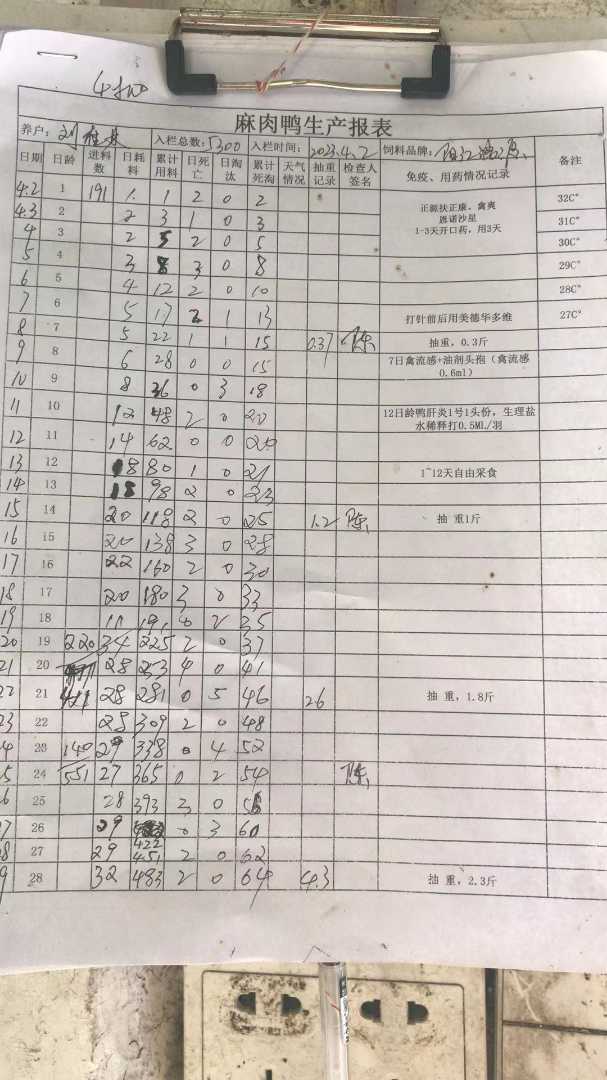 麻肉鸭生产报表
养户： 入栏总数：5300 入栏时间：2023.4.2 饲料品牌：
日期 日龄 进料数 日耗料 累计用料 日死亡 日淘汰 累计死淘 天气情况 抽重记录 检查人签名 免疫、用药情况记录 备注
4.2 1 191 1 1 2 0 2 正源扶正康，禽爽 32C°
4.3 2 2 3 1 0 3 恩诺沙星 31C°
4 3 2 5 2 0 5 1-3天开口药，用3天 30C°
5 4 3 8 3 0 8 29C°
6 5 4 12 2 0 10 28C°
7 6 5 17 2 1 13 打针前后用美德华多维 27C°
8 7 5 22 1 1 15 0.37 陈 抽重，0.3斤
9 8 6 28 0 0 15 7日禽流感+油剂头孢（禽流感0.6ml）
10 9 8 36 0 3 18
11 10 12 48 2 0 20 12日龄鸭肝炎1号1头份，生理盐水稀释打0.5ML/羽
12 11 14 62 0 0 20
13 12 18 80 1 0 21 1~12天自由采食
14 13 18 98 2 0 23
15 14 20 118 2 0 25 1.2 陈 抽 重1斤
16 15 20 138 3 0 28
17 16 22 160 2 0 30
18 17 20 180 3 0 33
19 18 11 191 0 2 35
20 19 220 34 225 2 0 37
21 20 28 253 4 0 41
22 21 411 28 281 0 5 46 26 抽 重，1.8斤
23 22 28 309 2 0 48
4 23 140 29 338 0 4 52
5 24 551 27 365 0 2 54 陈
6 25 28 393 3 0
7 26 29 422 0 3 60
8 27 29 451 2 0 62
9 28 32 483 2 0 64 4.3 抽 重，2.3斤